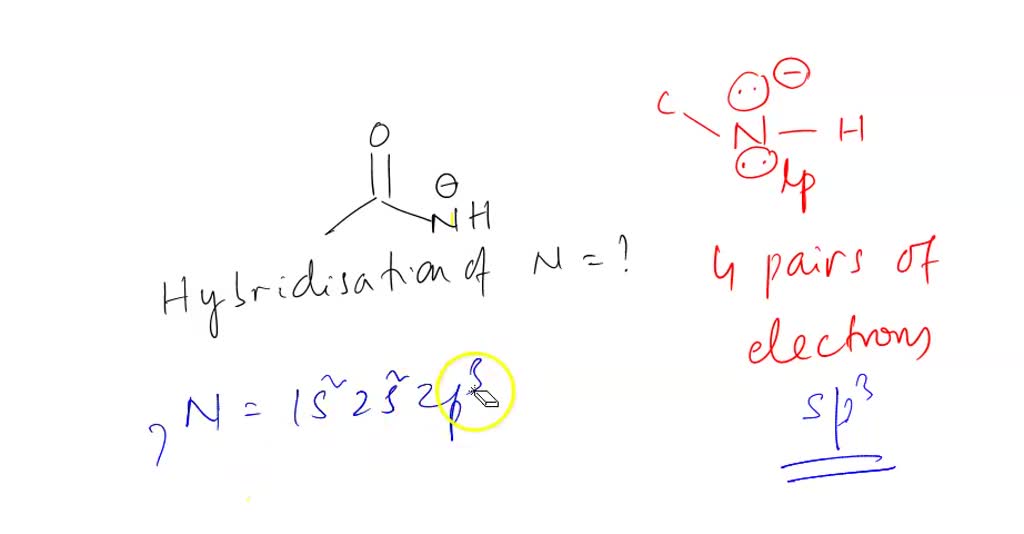 O
⊖
NH
Hybridisation of N = ?
, N = 1s² 2s² 2p³
⊖
C
N — H
lp
4 pairs of
electrons
sp³